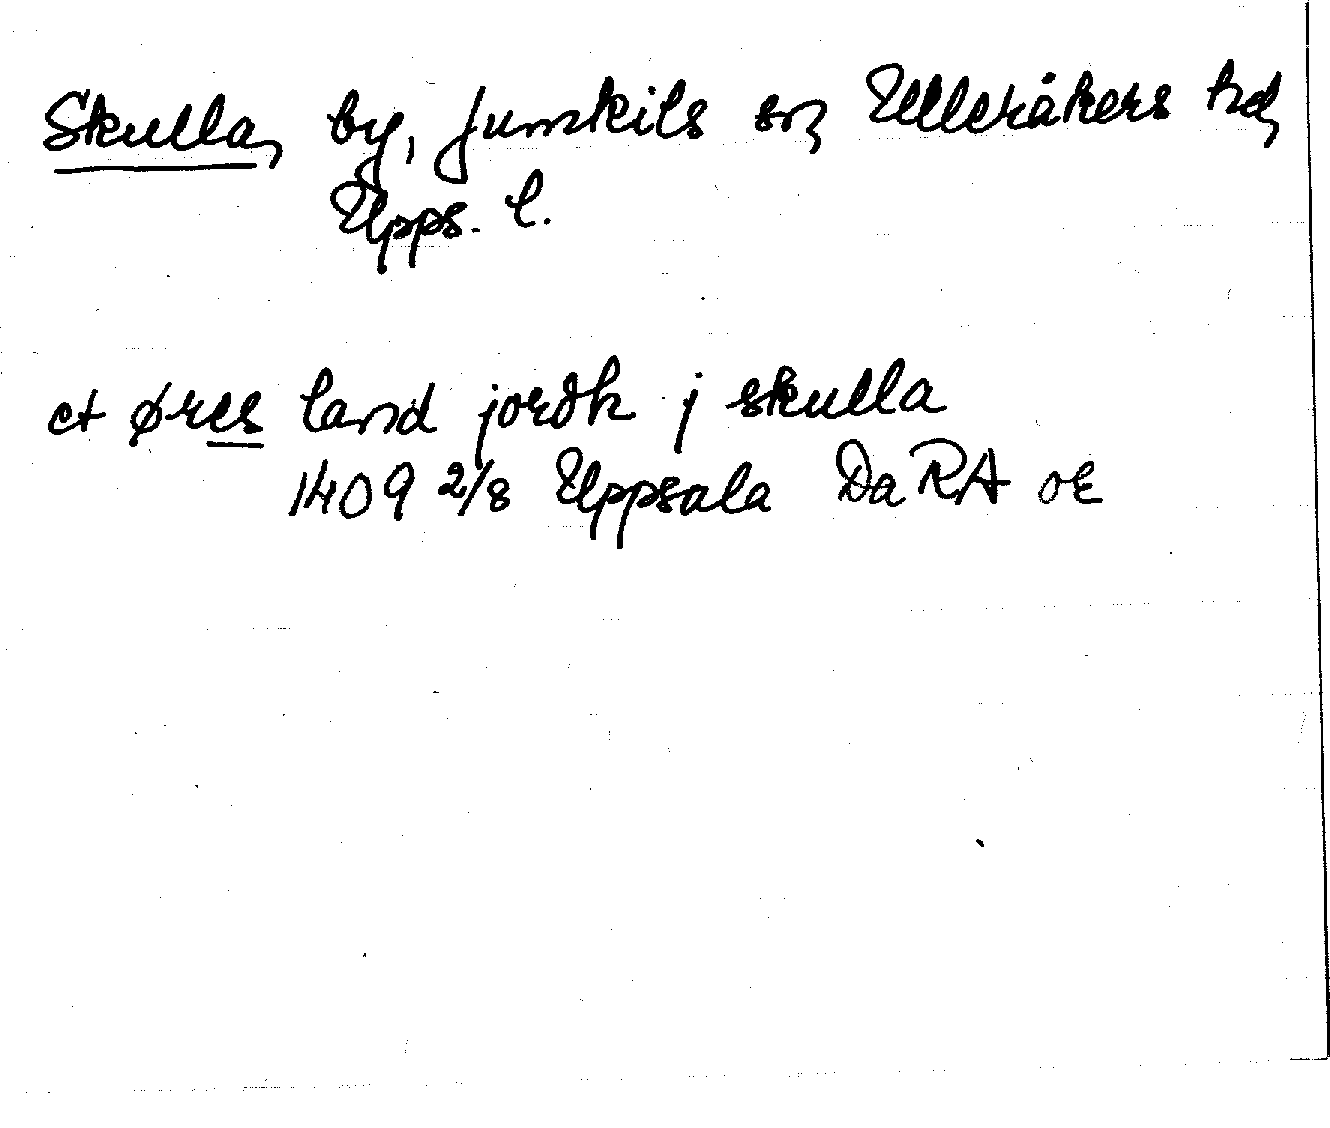 Skulla, by, Jumkils sn, Ulleråkers hd,
Upps. l.
et øres land jordh j skulla
1409 2/8 Uppsala DaRA oE